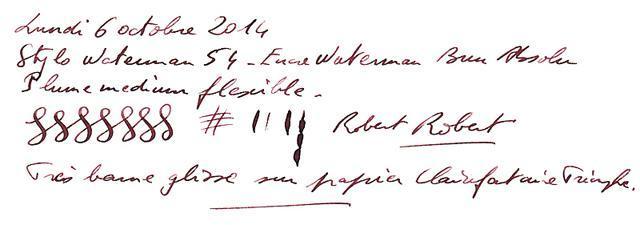 Lundi 6 octobre 2014
Stylo Waterman 54 - Encre Waterman Brun Absolu
Plume medium flexible.
# Robert Robert
Très bonne glisse sur papier Clairefontaine Triomphe.